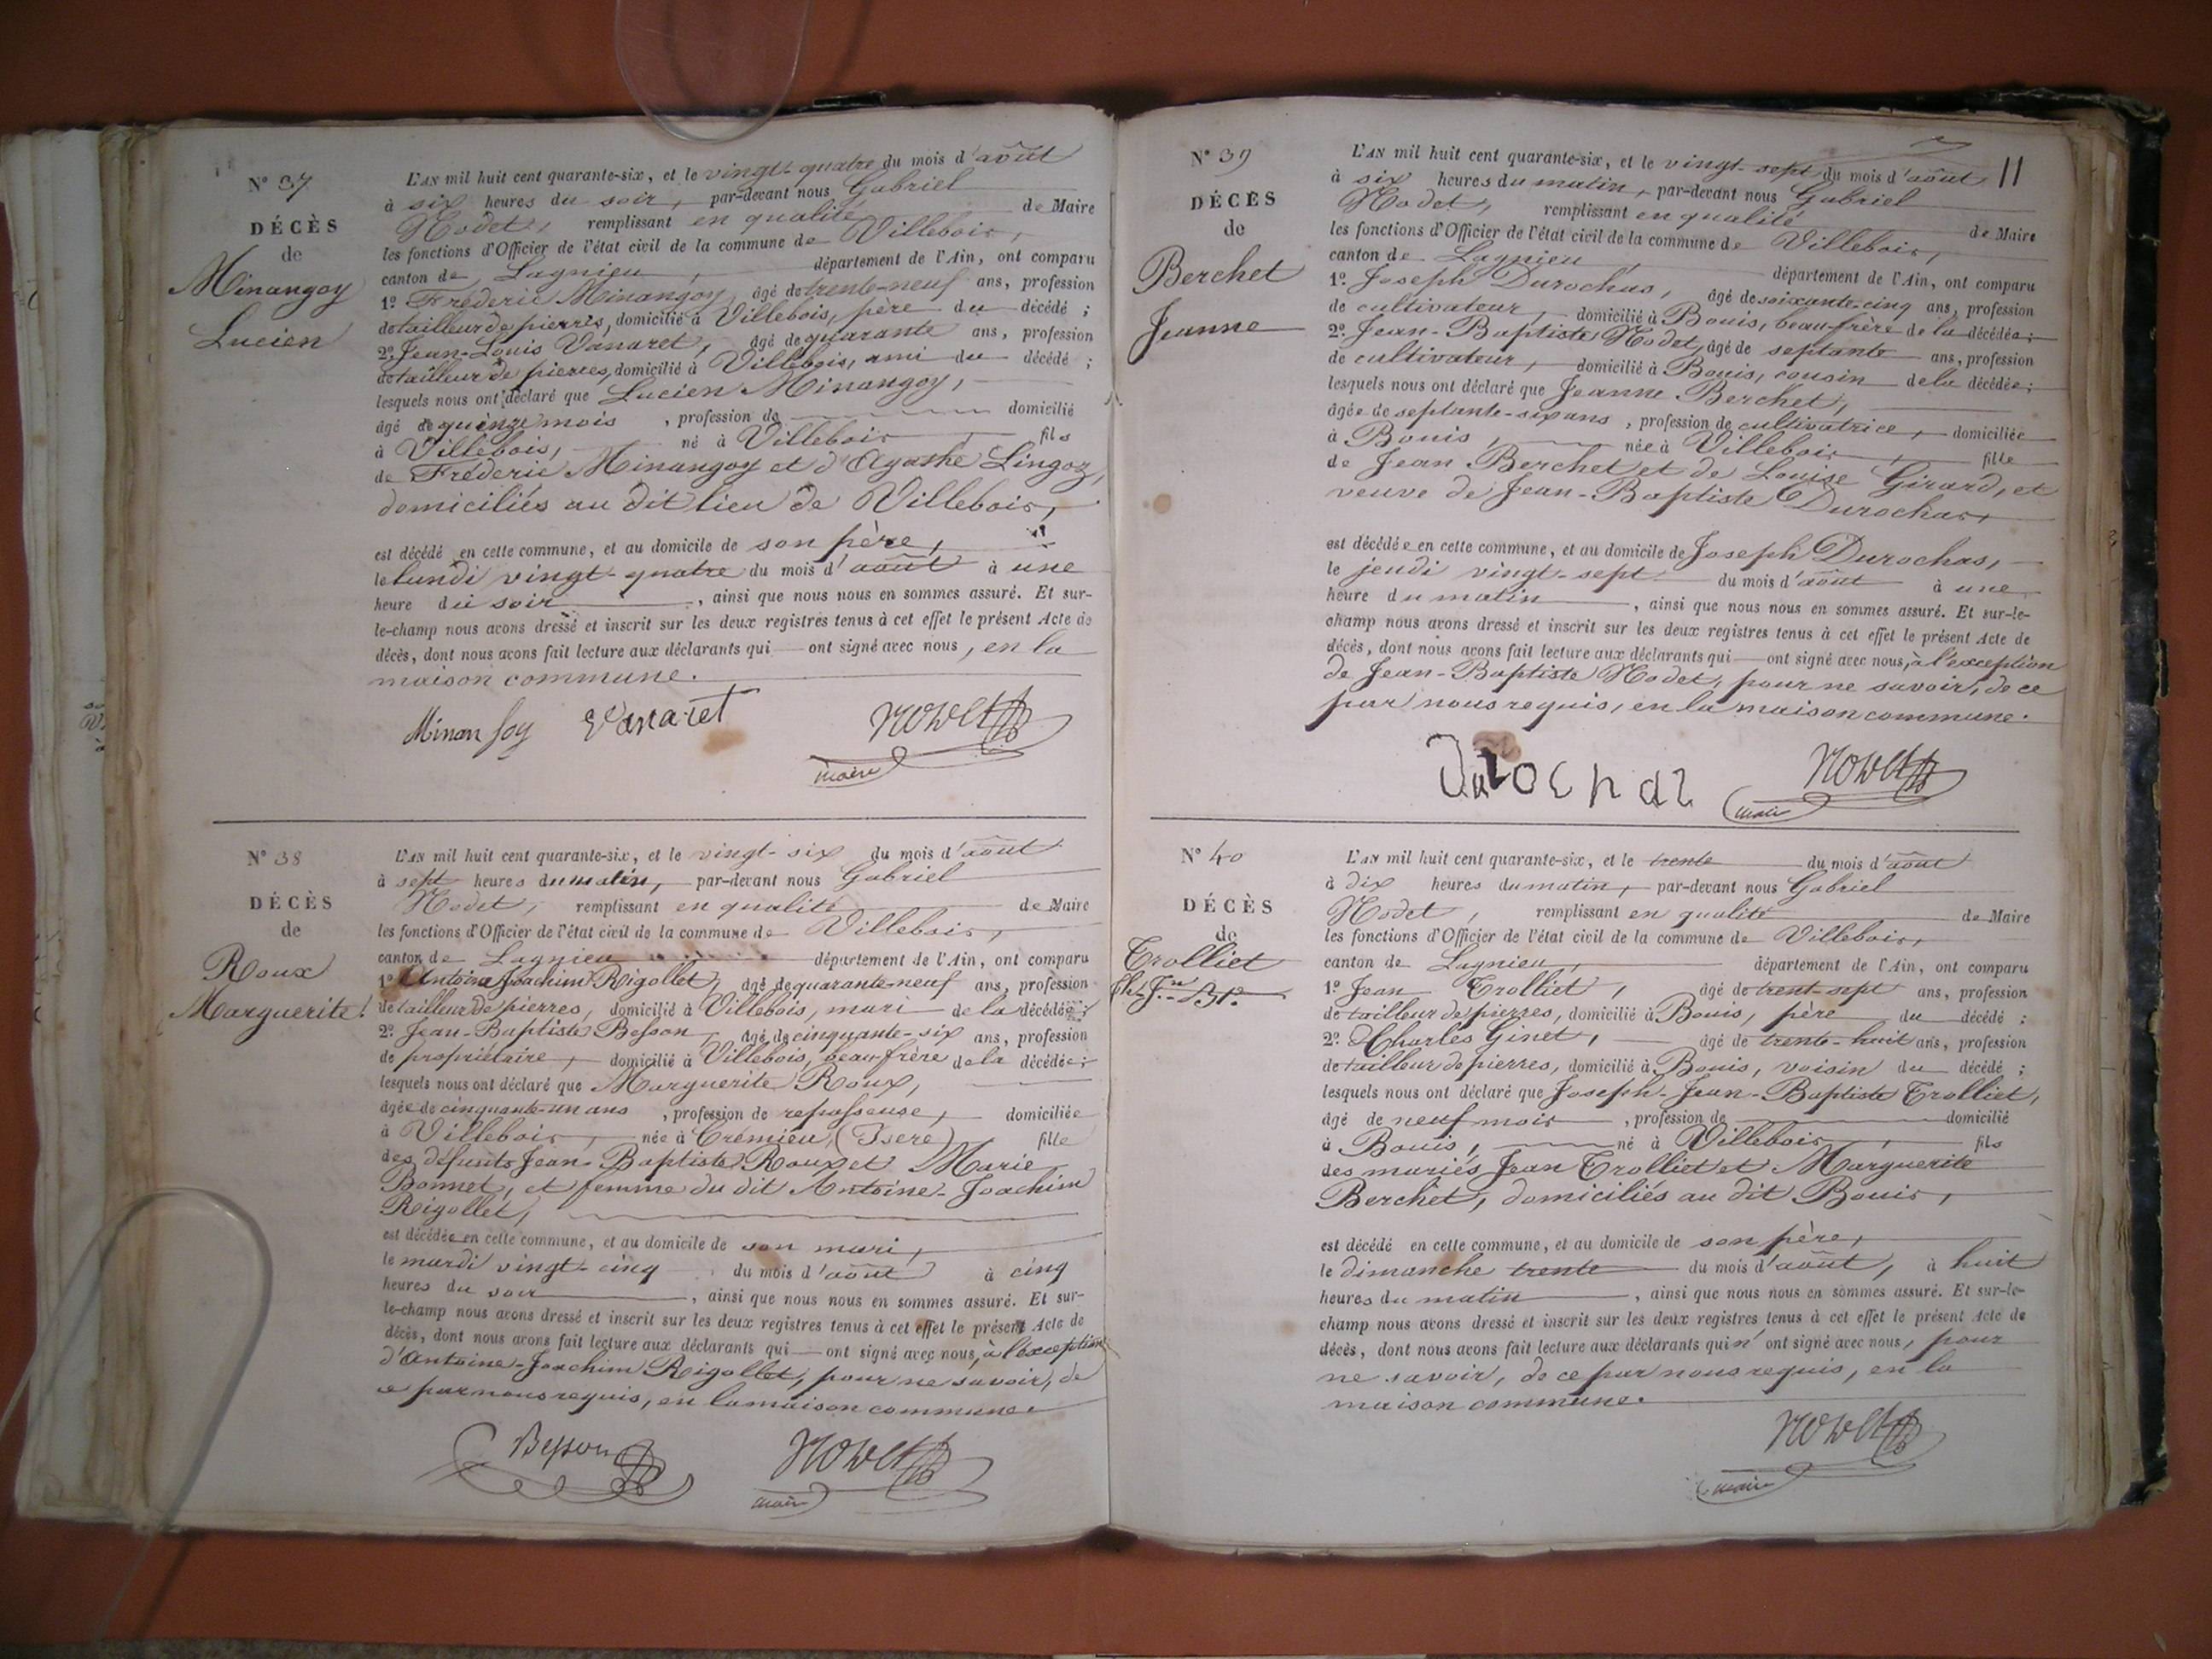 N° 37
DÉCÈS
de
Minangoy
Lucien
L'AN mil huit cent quarante-six, et le vingt-quatre du mois d'août
à six heures du soir, par-devant nous Gabriel
Nodet, remplissant en qualité de Maire
les fonctions d'Officier de l'état civil de la commune de Villebois,
canton de Lagnieu, département de l'Ain, ont comparu
1° Fréderic Minangoy, âgé de trente-neuf ans, profession
de tailleur de pierres, domicilié à Villebois, père du décédé ;
2° Jean-Louis Vanaret, âgé de quarante ans, profession
de tailleur de pierres, domicilié à Villebois, ami du décédé ;
lesquels nous ont déclaré que Lucien Minangoy,
âgé de quinze mois, profession de domicilié
à Villebois, né à Villebois, fils
de Fréderic Minangoy et d'Agathe Lingoz,
domiciliés au dit lieu de Villebois,
est décédé en cette commune, et au domicile de son père,
le lundi vingt-quatre du mois d'août à une
heure du soir, ainsi que nous nous en sommes assuré. Et sur-
le-champ nous avons dressé et inscrit sur les deux registres tenus à cet effet le présent Acte de
décès, dont nous avons fait lecture aux déclarants qui ont signé avec nous, en la
maison commune.
Minangoy Vanaret Nodet
maire
N° 38
DÉCÈS
de
Roux
Marguerite.
L'AN mil huit cent quarante-six, et le vingt-six du mois d'août
à sept heures du matin, par-devant nous Gabriel
Nodet, remplissant en qualité de Maire
les fonctions d'Officier de l'état civil de la commune de Villebois,
canton de Lagnieu département de l'Ain, ont comparu
1° Antoine Joachim Rigollet, âgé de quarante-neuf ans, profession
de tailleur de pierres, domicilié à Villebois, mari de la décédée ;
2° Jean-Baptiste Besson, âgé de cinquante-six ans, profession
de propriétaire, domicilié à Villebois, beau-frère de la décédée ;
lesquels nous ont déclaré que Marguerite Roux,
âgée de cinquante-un ans, profession de repasseuse, domiciliée
à Villebois, née à Crémieu, (Isere) fille
des défunts Jean-Baptiste Roux et Marie
Bonnet, et femme du dit Antoine-Joachim
Rigollet,
est décédée en cette commune, et au domicile de son mari,
le mardi vingt-cinq du mois d'août à cinq
heures du soir, ainsi que nous nous en sommes assuré. Et sur-
le-champ nous avons dressé et inscrit sur les deux registres tenus à cet effet le présent Acte de
décès, dont nous avons fait lecture aux déclarants qui ont signé avec nous, à l'exception
d'Antoine-Joachim Rigollet, pour ne savoir, de
ce par nous requis, en la maison commune.
Besson Nodet
maire
11
N° 39
DÉCÈS
de
Berchet
Jeanne
L'AN mil huit cent quarante-six, et le vingt-sept du mois d'août
à six heures du matin, par-devant nous Gabriel
Nodet, remplissant en qualité de Maire
les fonctions d'Officier de l'état civil de la commune de Villebois,
canton de Lagnieu, département de l'Ain, ont comparu
1° Joseph Durochas, âgé de soixante-cinq ans, profession
de cultivateur, domicilié à Bouis, beau-frère de la décédée ;
2° Jean-Baptiste Nodet, âgé de septante ans, profession
de cultivateur, domicilié à Bouis, cousin de la décédée ;
lesquels nous ont déclaré que Jeanne Berchet,
âgée de septante-six ans, profession de cultivatrice, domiciliée
à Bouis, née à Villebois, fille
de Jean Berchet et de Louise Girard, et
veuve de Jean-Baptiste Durochas,
est décédée en cette commune, et au domicile de Joseph Durochas,
le jeudi vingt-sept du mois d'août à une
heure du matin, ainsi que nous nous en sommes assuré. Et sur-le-
champ nous avons dressé et inscrit sur les deux registres tenus à cet effet le présent Acte de
décès, dont nous avons fait lecture aux déclarants qui ont signé avec nous, à l'exception
de Jean-Baptiste Nodet, pour ne savoir, de ce
par nous requis, en la maison commune.
Durochas Nodet
maire
N° 40
DÉCÈS
de
Trolliet
Jh. Jn. Bte.
L'AN mil huit cent quarante-six, et le trente du mois d'août
à dix heures du matin, par-devant nous Gabriel
Nodet, remplissant en qualité de Maire
les fonctions d'Officier de l'état civil de la commune de Villebois,
canton de Lagnieu, département de l'Ain, ont comparu
1° Jean Trolliet, âgé de trent sept ans, profession
de tailleur de pierres, domicilié à Bouis, père du décédé ;
2° Charles Ginet, âgé de trente-huit ans, profession
de tailleur de pierres, domicilié à Bouis, voisin du décédé ;
lesquels nous ont déclaré que Joseph-Jean-Baptiste Trolliet,
âgé de neuf mois, profession de domicilié
à Bouis, né à Villebois, fils
des mariés Jean Trolliet et Marguerite
Berchet, domiciliés au dit Bouis,
est décédé en cette commune, et au domicile de son père,
le dimanche trente du mois d'août, à huit
heures du matin, ainsi que nous nous en sommes assuré. Et sur-le-
champ nous avons dressé et inscrit sur les deux registres tenus à cet effet le présent Acte de
décès, dont nous avons fait lecture aux déclarants qui n'ont signé avec nous, pour
ne savoir, de ce par nous requis, en la
maison commune.
Nodet
maire